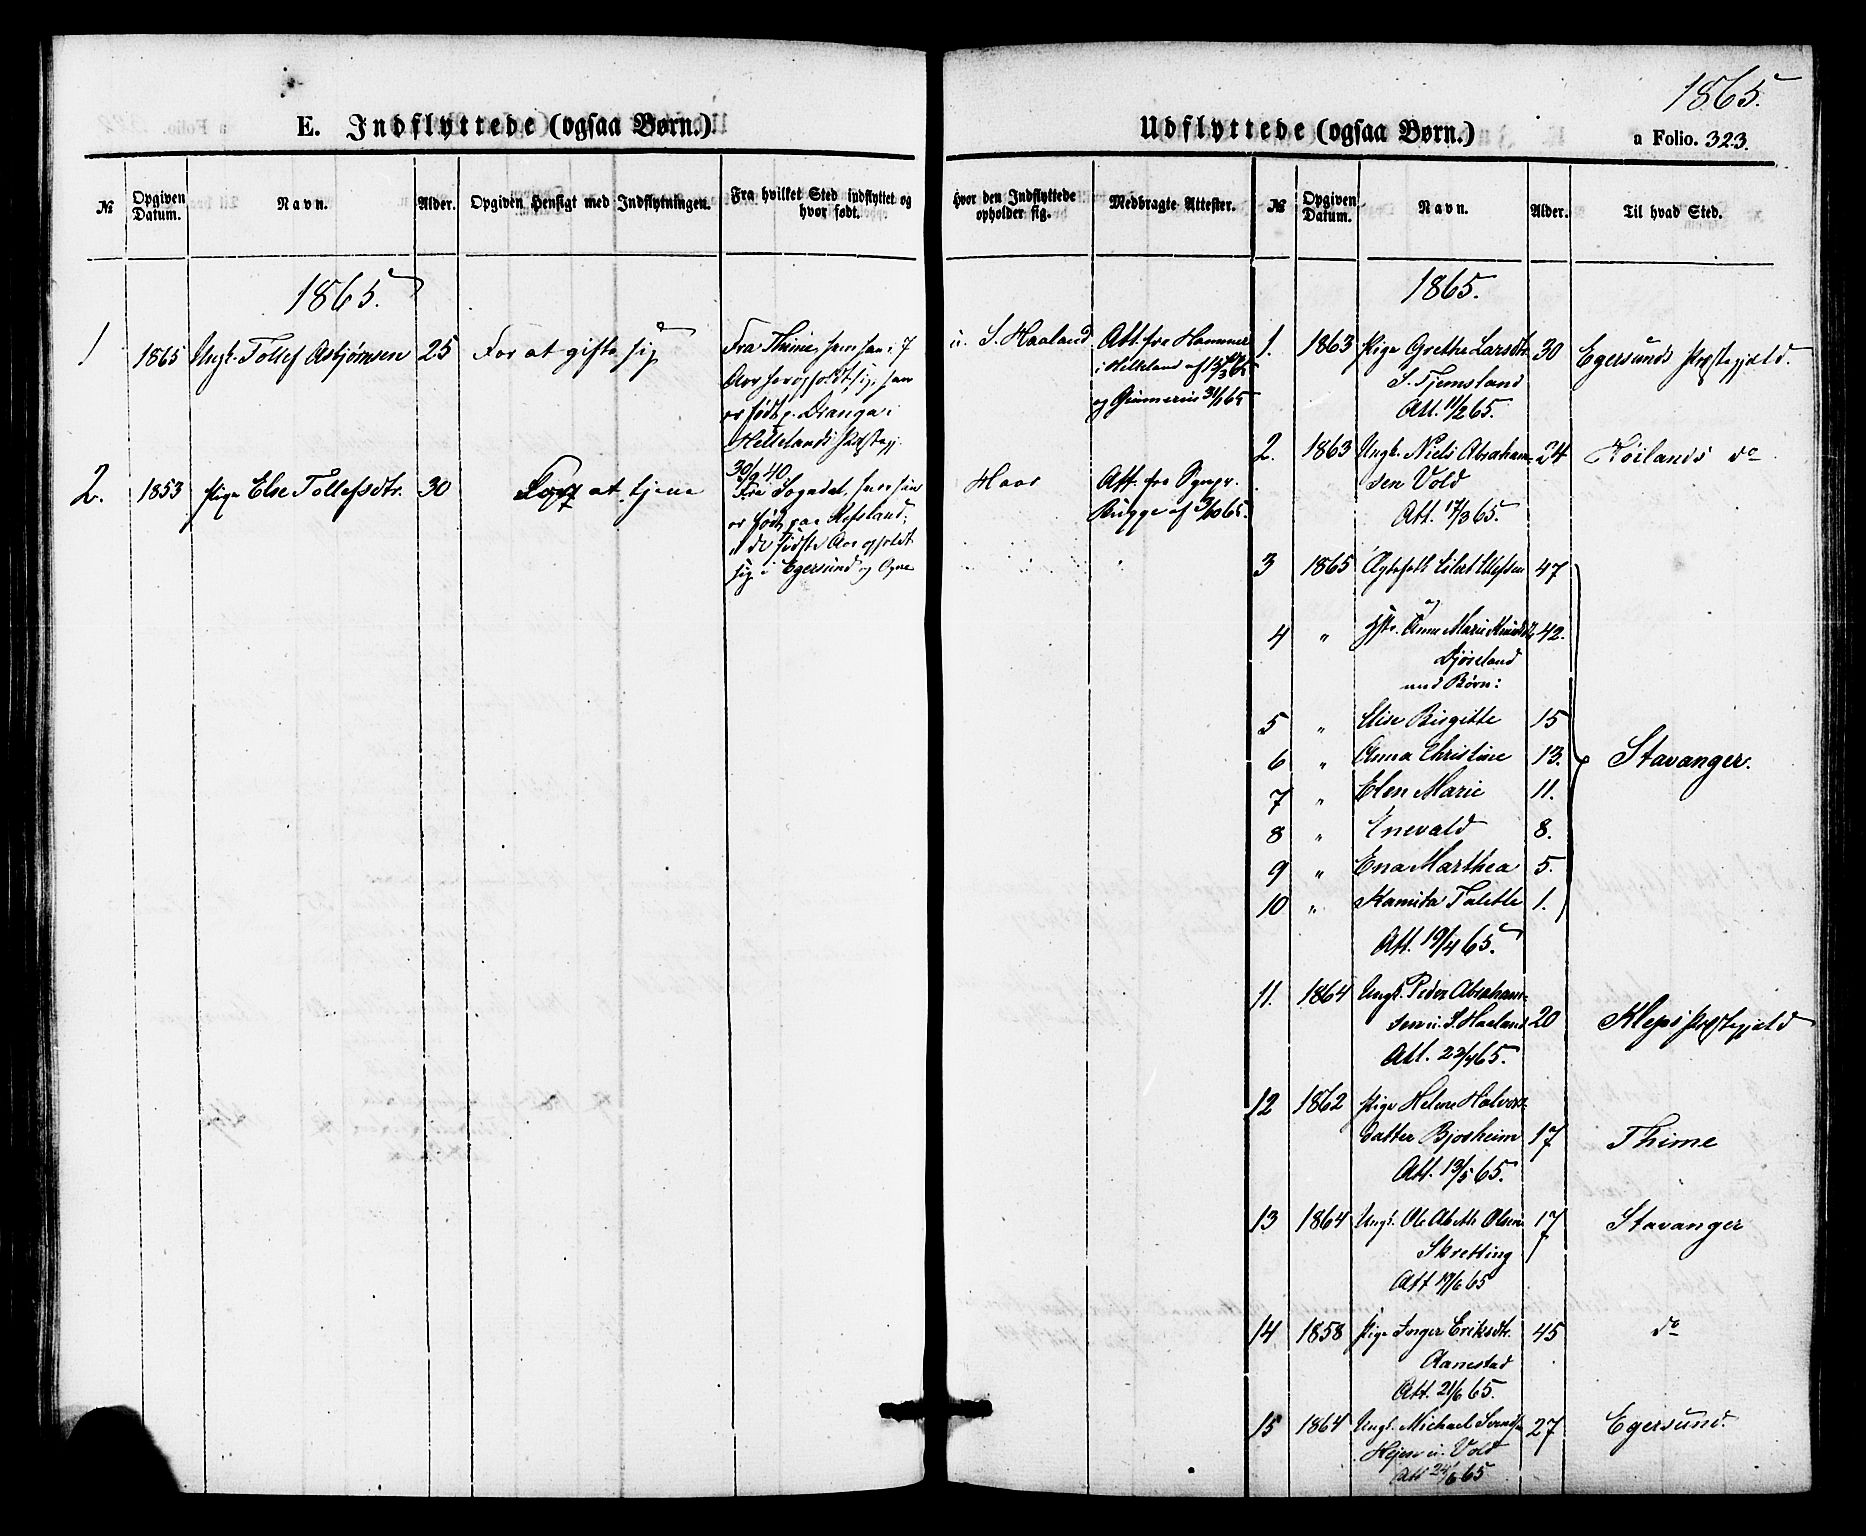 1865.
E. Indflyttede (ogsaa Børn.)
Udflyttede (ogsaa Børn.)
a Folio. 323.
№ Opgiven Datum. Navn. Alder. Opgiven Hensigt med Indflytningen. Fra hvilket Sted indflyttet og hvor født.
Hvor den Indflyttede opholder sig. Medbragte Attester. № Opgiven Datum. Navn. Alder. Til hvad Sted.
1865.
1 1865 Ungk. Tollef Asbjørnsen 25 For at gifte sig
Fra Thime, hvor han i 7
Aar har opholdt sig, han
er født p. Drange i
Hellelands Præstegj.
30/9 40.
u. S. Haaland
Att. fra Hammer
i Helleland af
og Gunnerius 31/1 65
2. 1853 Pige Else Tollefsdtr. 30 For at tjene
Fra Sogndal, hvor hun
er født paa Refsland;
de sidste Aar opholdt
sig i Egersund og Ogne
Haar
Att. fra Sgnpr.
Bugge af 3/10 65.
1865.
1. 1863 Pige Grethe Larsdtr. 30 Egersunds Præstegjeld.
S. Tjemsland
Att. 11/2 65.
2. 1863 Ungk. Niels Abraham- 24 Høilands do
sen Vold
Att. 17/3 65.
3 1865 Ægtefolk Eilert Ellefsen 47
og
4 " Hstr. Anne Marie 42.
Djøseland
med Børn:
5 " Elise Birgitte 15
6 " Anna Christine 13. Stavanger.
7 " Elen Marie 11.
8 " Enevald 8.
9 " Ena Marthea 5.
10 " Kamitta Talette 1.
Att. 19/4 65.
11. 1864 Ungk. Peder Abraham-
sen u. S. Haaland 20 Kleps Præstegjeld
Att. 22/4 65.
12 1862 Pige Helene Halvors-
datter Bjorheim 17 Thime
Att. 13/5 65.
13 1864 Ungk. Ole Abeth Olsen 17 Stavanger
Skretting
Att 19/6 65
14 1858 Pige Inger Eriksdtr. 45 do
Aanestad
Att. 21/6 65.
15 1864 Ungk. Michael Svends. 27 Egersund.
u. Vold
Att 24/6 65